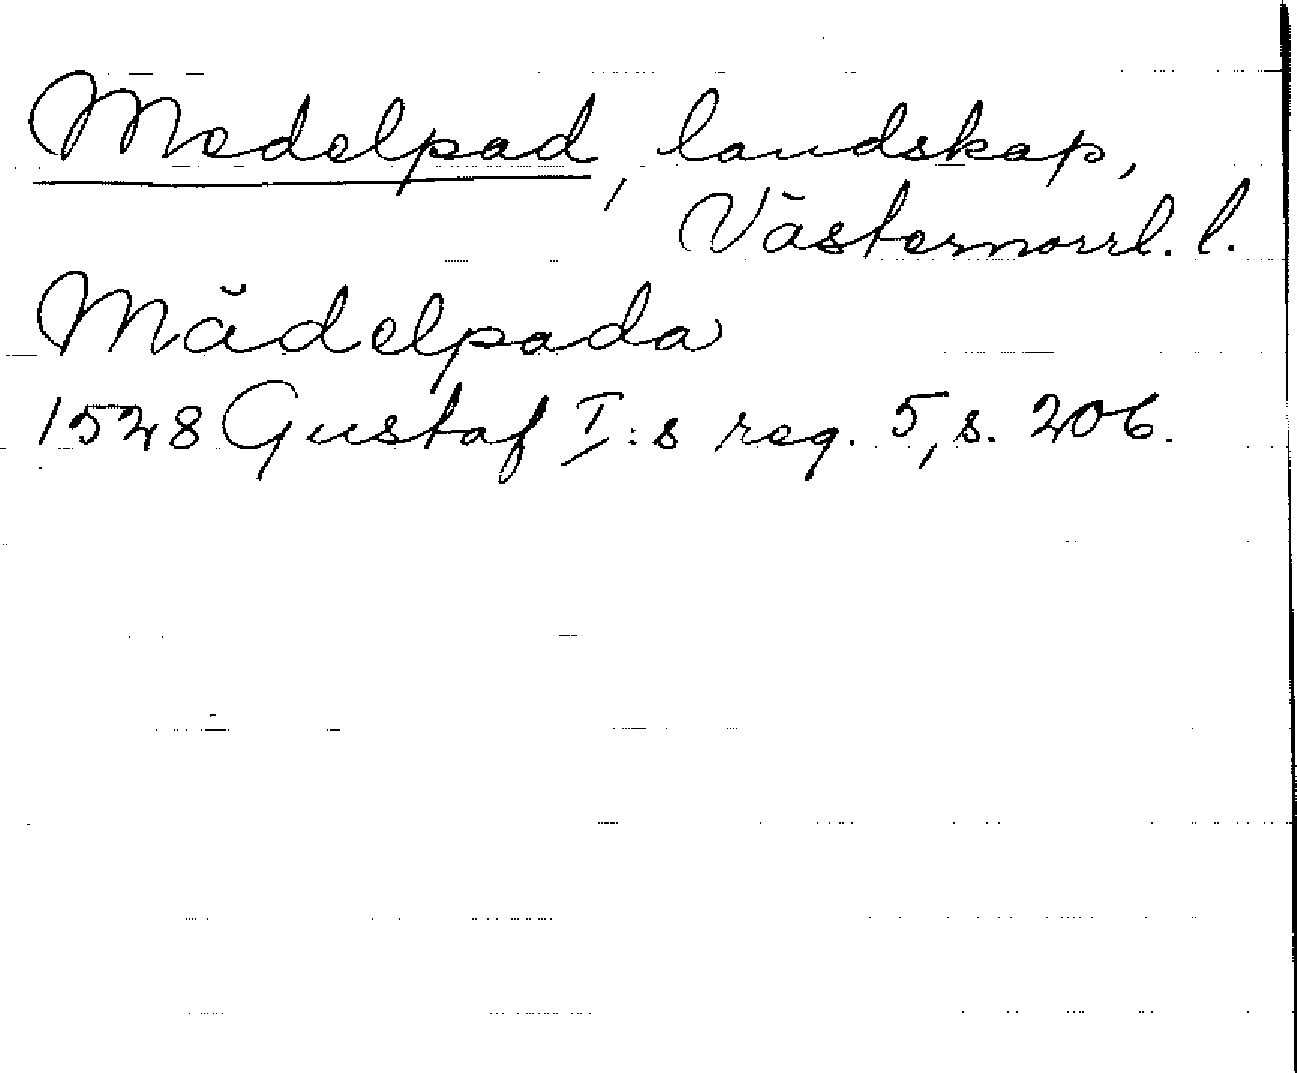 Medelpad, landskap,
Västernorrl. l.
Mädelpada
1528 Gustaf I:s reg. 5, s. 206.